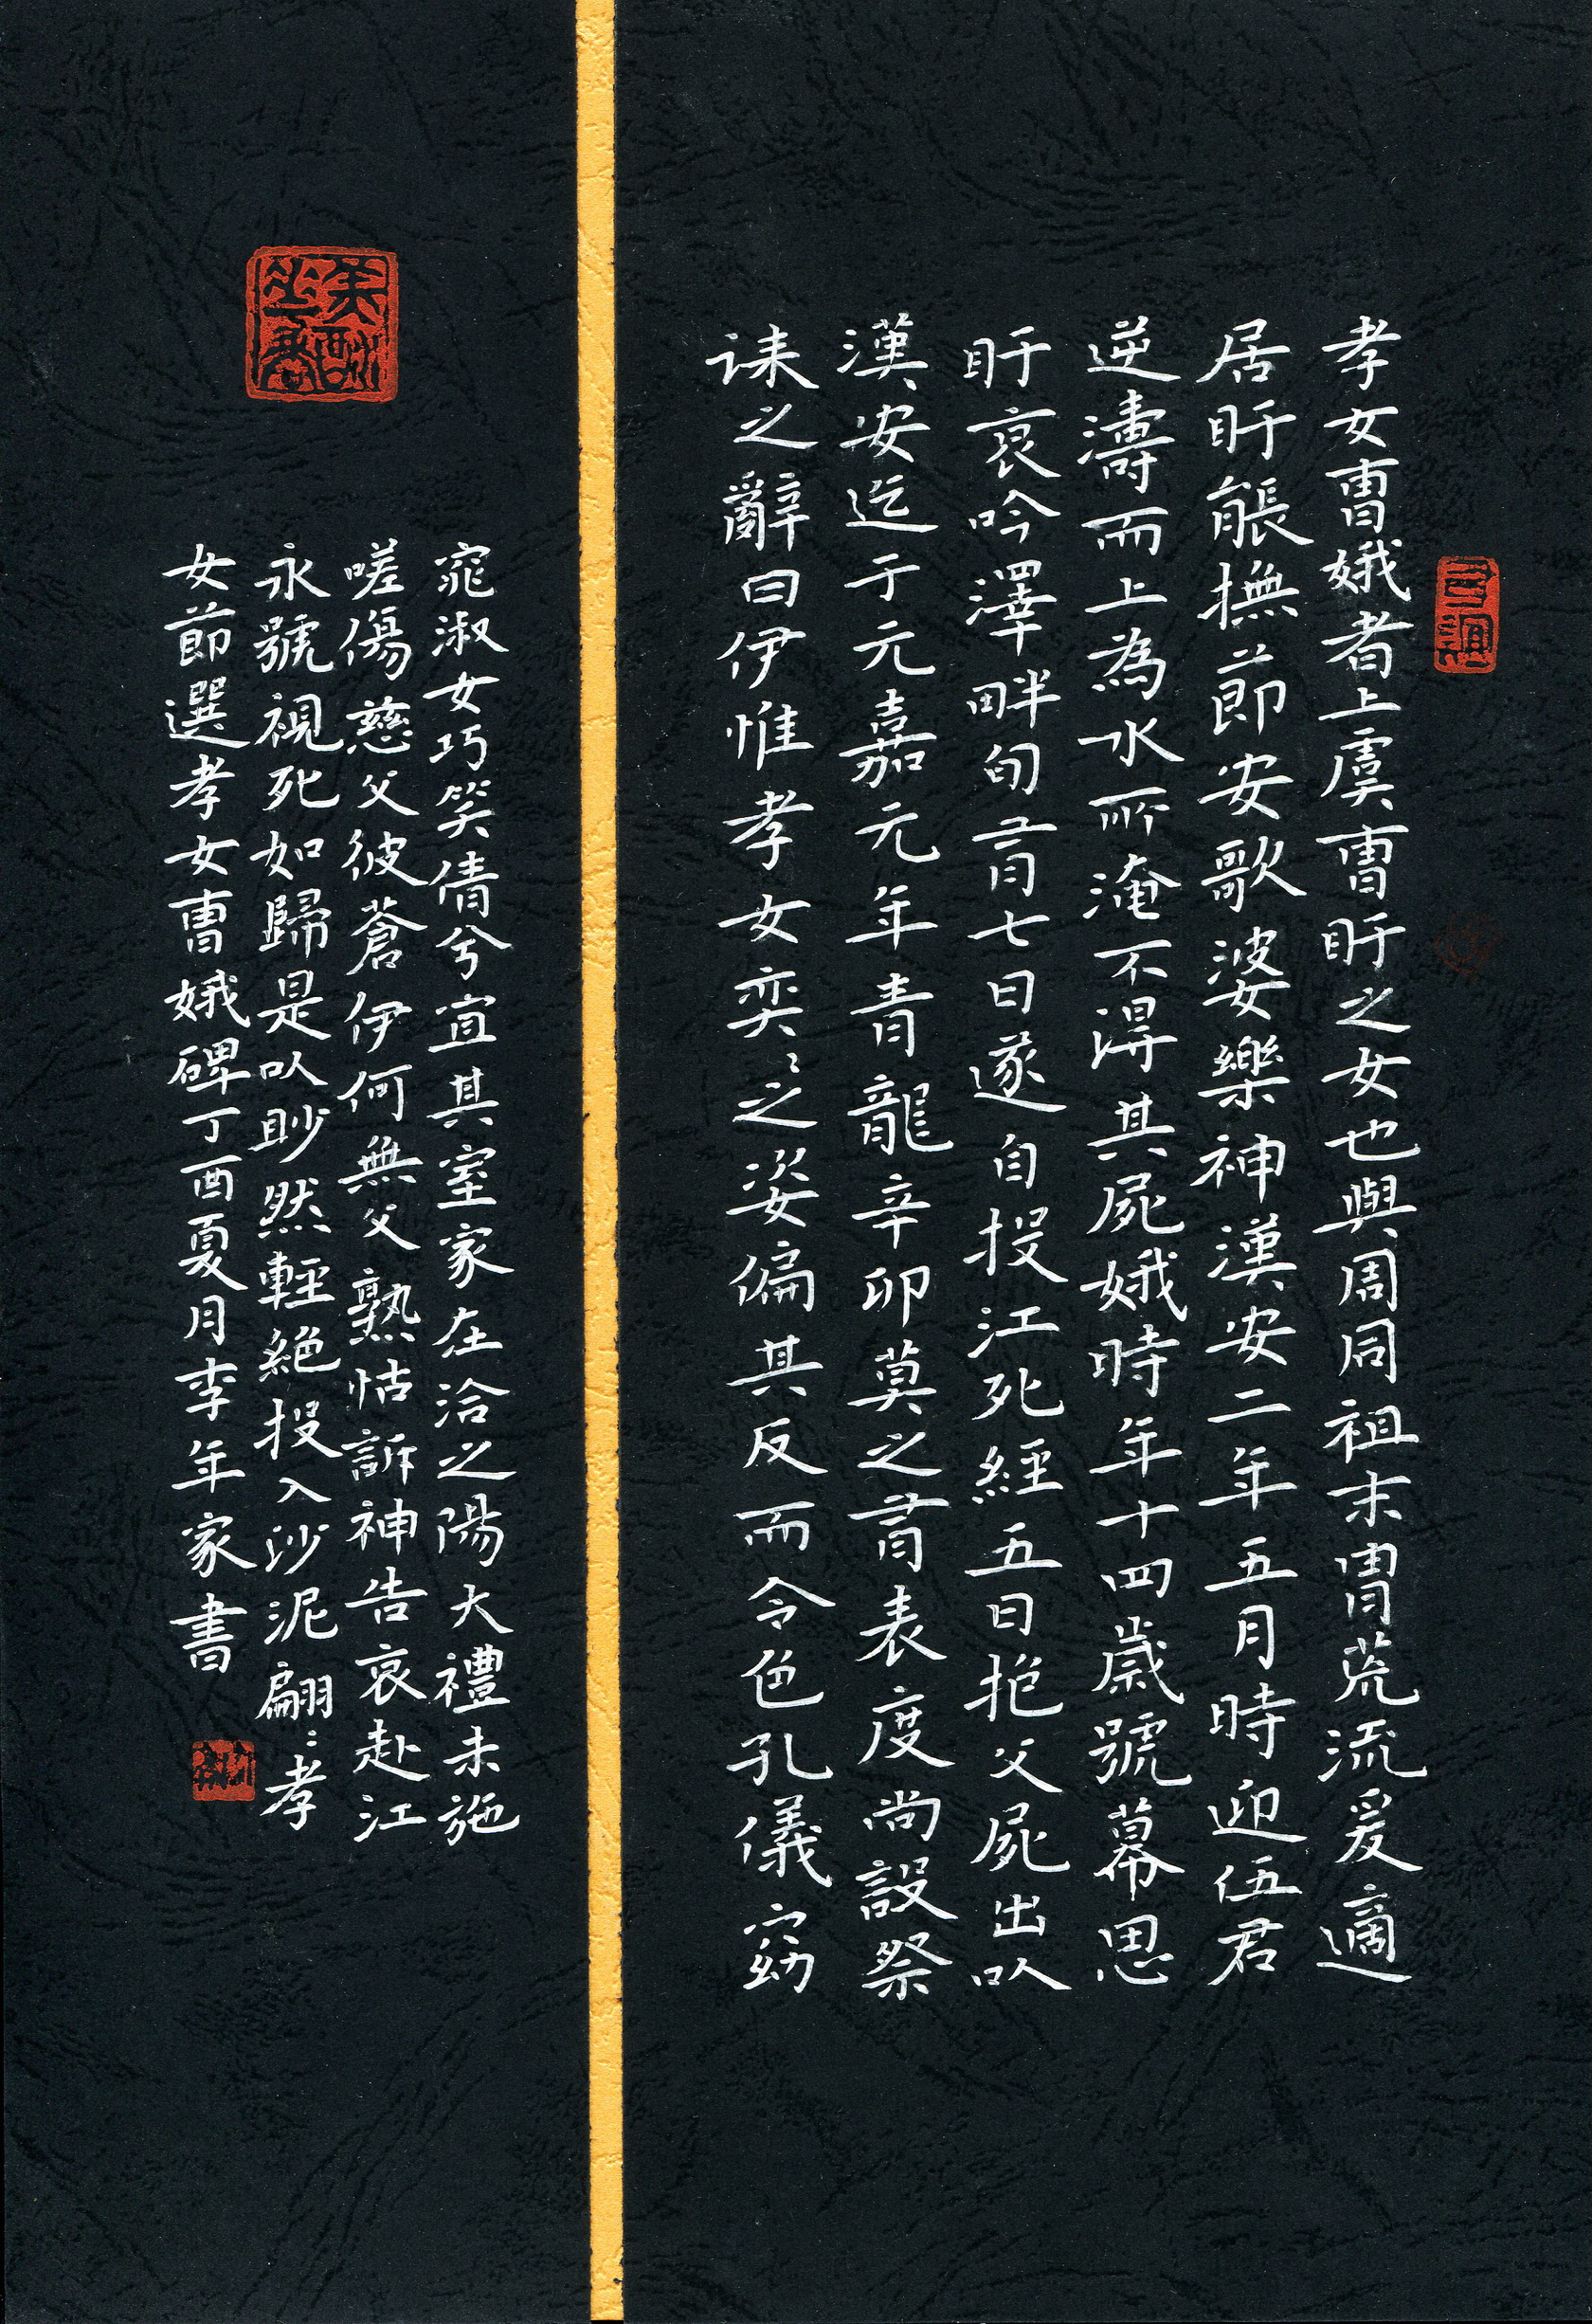 孝女曹娥者上虞曹盱之女也與周同祖末冑荒流爰適
居盱能撫節安歌婆樂神漢安二年五月時迎伍君
逆濤而上為水所淹不得其屍娥時年十四歲號慕思
盱哀吟澤畔旬有七日遂自投江死經五日抱父屍出以
漢安迄于元嘉元年青龍辛卯莫之有表度尚設祭
誄之辭曰伊惟孝女奕〻之姿偏其反而令色孔儀窈
窕淑女巧笑倩兮宜其室家在洽之陽大禮未施
嗟傷慈父彼蒼伊何無父孰怙訴神告哀赴江
永號視死如歸是以眇然輕絕投入沙泥翩〻孝
女節選孝女曹娥碑丁酉夏月李年家書